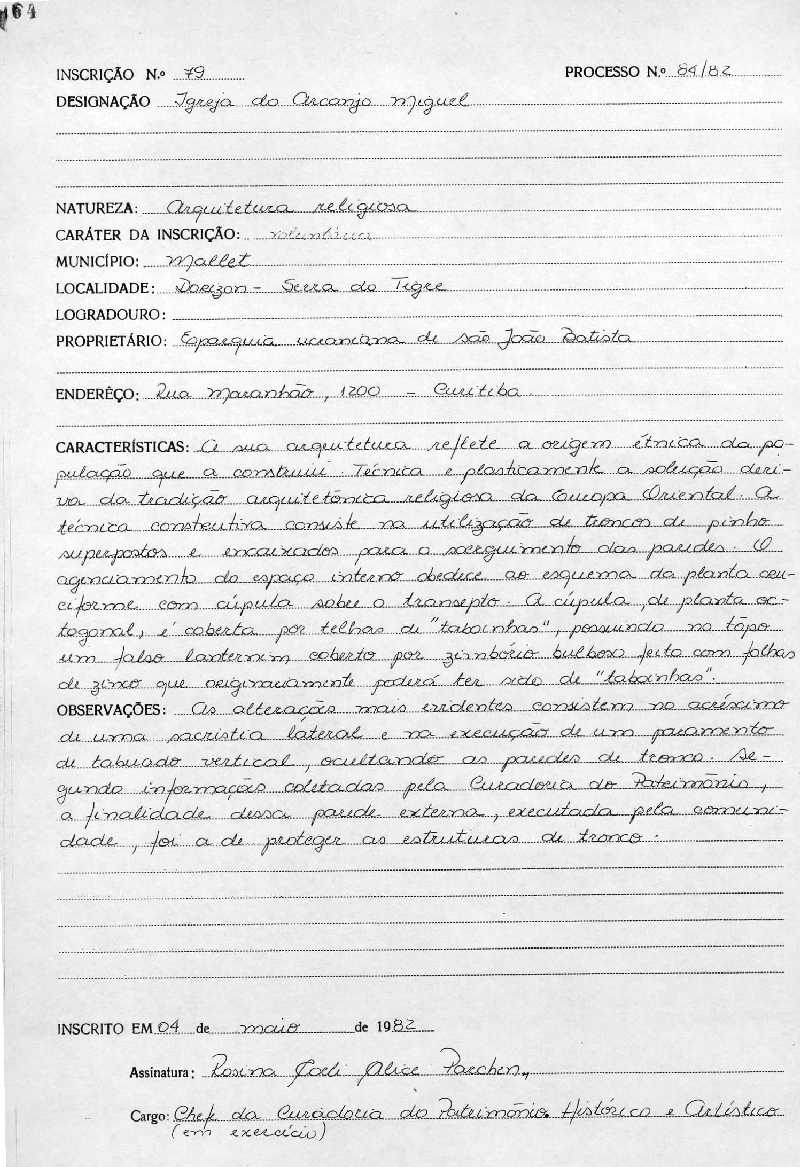 164
INSCRIÇÃO N.º 79 PROCESSO N.º 84/82
DESIGNAÇÃO Igreja do Arcanjo Miguel
NATUREZA: Arquitetura religiosa
CARÁTER DA INSCRIÇÃO: voluntária
MUNICÍPIO: Mallet
LOCALIDADE: Dorizon - Serra do Tigre
LOGRADOURO:
PROPRIETÁRIO: Eparquia ucraniana de são João Batista
ENDERÊÇO: Rua Maranhão, 1200 - Curitiba
CARACTERÍSTICAS: A sua arquitetura reflete a origem étnica da po-
pulação que a construiu. Técnica e plasticamente a solução deri-
va da tradição arquitetônica religiosa da Europa Oriental. A
técnica construtiva consiste na utilização de troncos de pinho
superpostos e encaixados para o soerguimento das paredes. O
agenciamento do espaço interno obedece ao esquema da planta cru-
ciforme com cúpula sobre o transepto. A cúpula, de planta oc-
togonal, é coberta por telhas de "taboinhas", possuindo no tôpo
um falso lanternim coberto por zimbório bulboso feito com folhas
de zinco que originariamente poderá ter sido de "tabainhas".
OBSERVAÇÕES: As alterações mais evidentes consistem no acréscimo
de uma sacristia lateral e na execução de um paramento
de tabuado vertical, ocultando as paredes de tronco. Se-
gundo informações coletadas pela Curadoria do Patrimônio,
a finalidade dessa parede externa, executada pela comuni-
dade, foi a de proteger as estruturas de tronco.
INSCRITO EM 04 de maio de 1982
Assinatura: Rosina Alice Parchen
Cargo: Chefe da Curadoria do Patrimônio Histórico e Artístico
(em exercício)